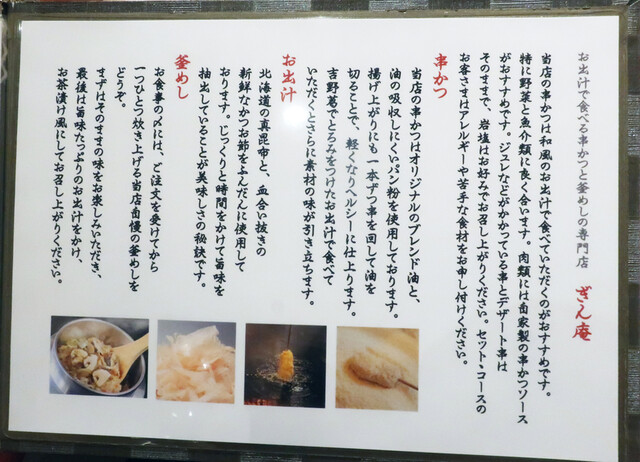 お出汁で食べる串かつと釜めしの専門店 ぎん庵
当店の串かつは和風のお出汁で食べていただくのがおすすめです。
特に野菜と魚介類に良く合います。肉類には自家製の串かつソース
がおすすめです。ジュレなどがかかっている串とデザート串は
そのままで、岩塩はお好みでお召し上がりください。セット・コースの
お客さまはアレルギーや苦手な食材をお申し付けください。
串かつ
当店の串かつはオリジナルのブレンド油と、
油の吸収しにくいパン粉を使用しております。
揚げ上がりにも一本ずつ串を回して油を
切ることで、軽くなりヘルシーに仕上ります。
吉野葛でとろみをつけたお出汁で食べて
いただくとさらに素材の味が引き立ちます。
お出汁
北海道の真昆布と、血合い抜きの
新鮮なかつお節をふんだんに使用して
おります。じっくりと時間をかけて旨味を
抽出していることが美味しさの秘訣です。
釜めし
お食事の〆には、ご注文を受けてから
一つひとつ炊き上げる当店自慢の釜めしを
どうぞ。
まずはそのままの味をお楽しみいただき、
最後は旨味たっぷりのお出汁をかけ、
お茶漬け風にしてお召し上がりください。